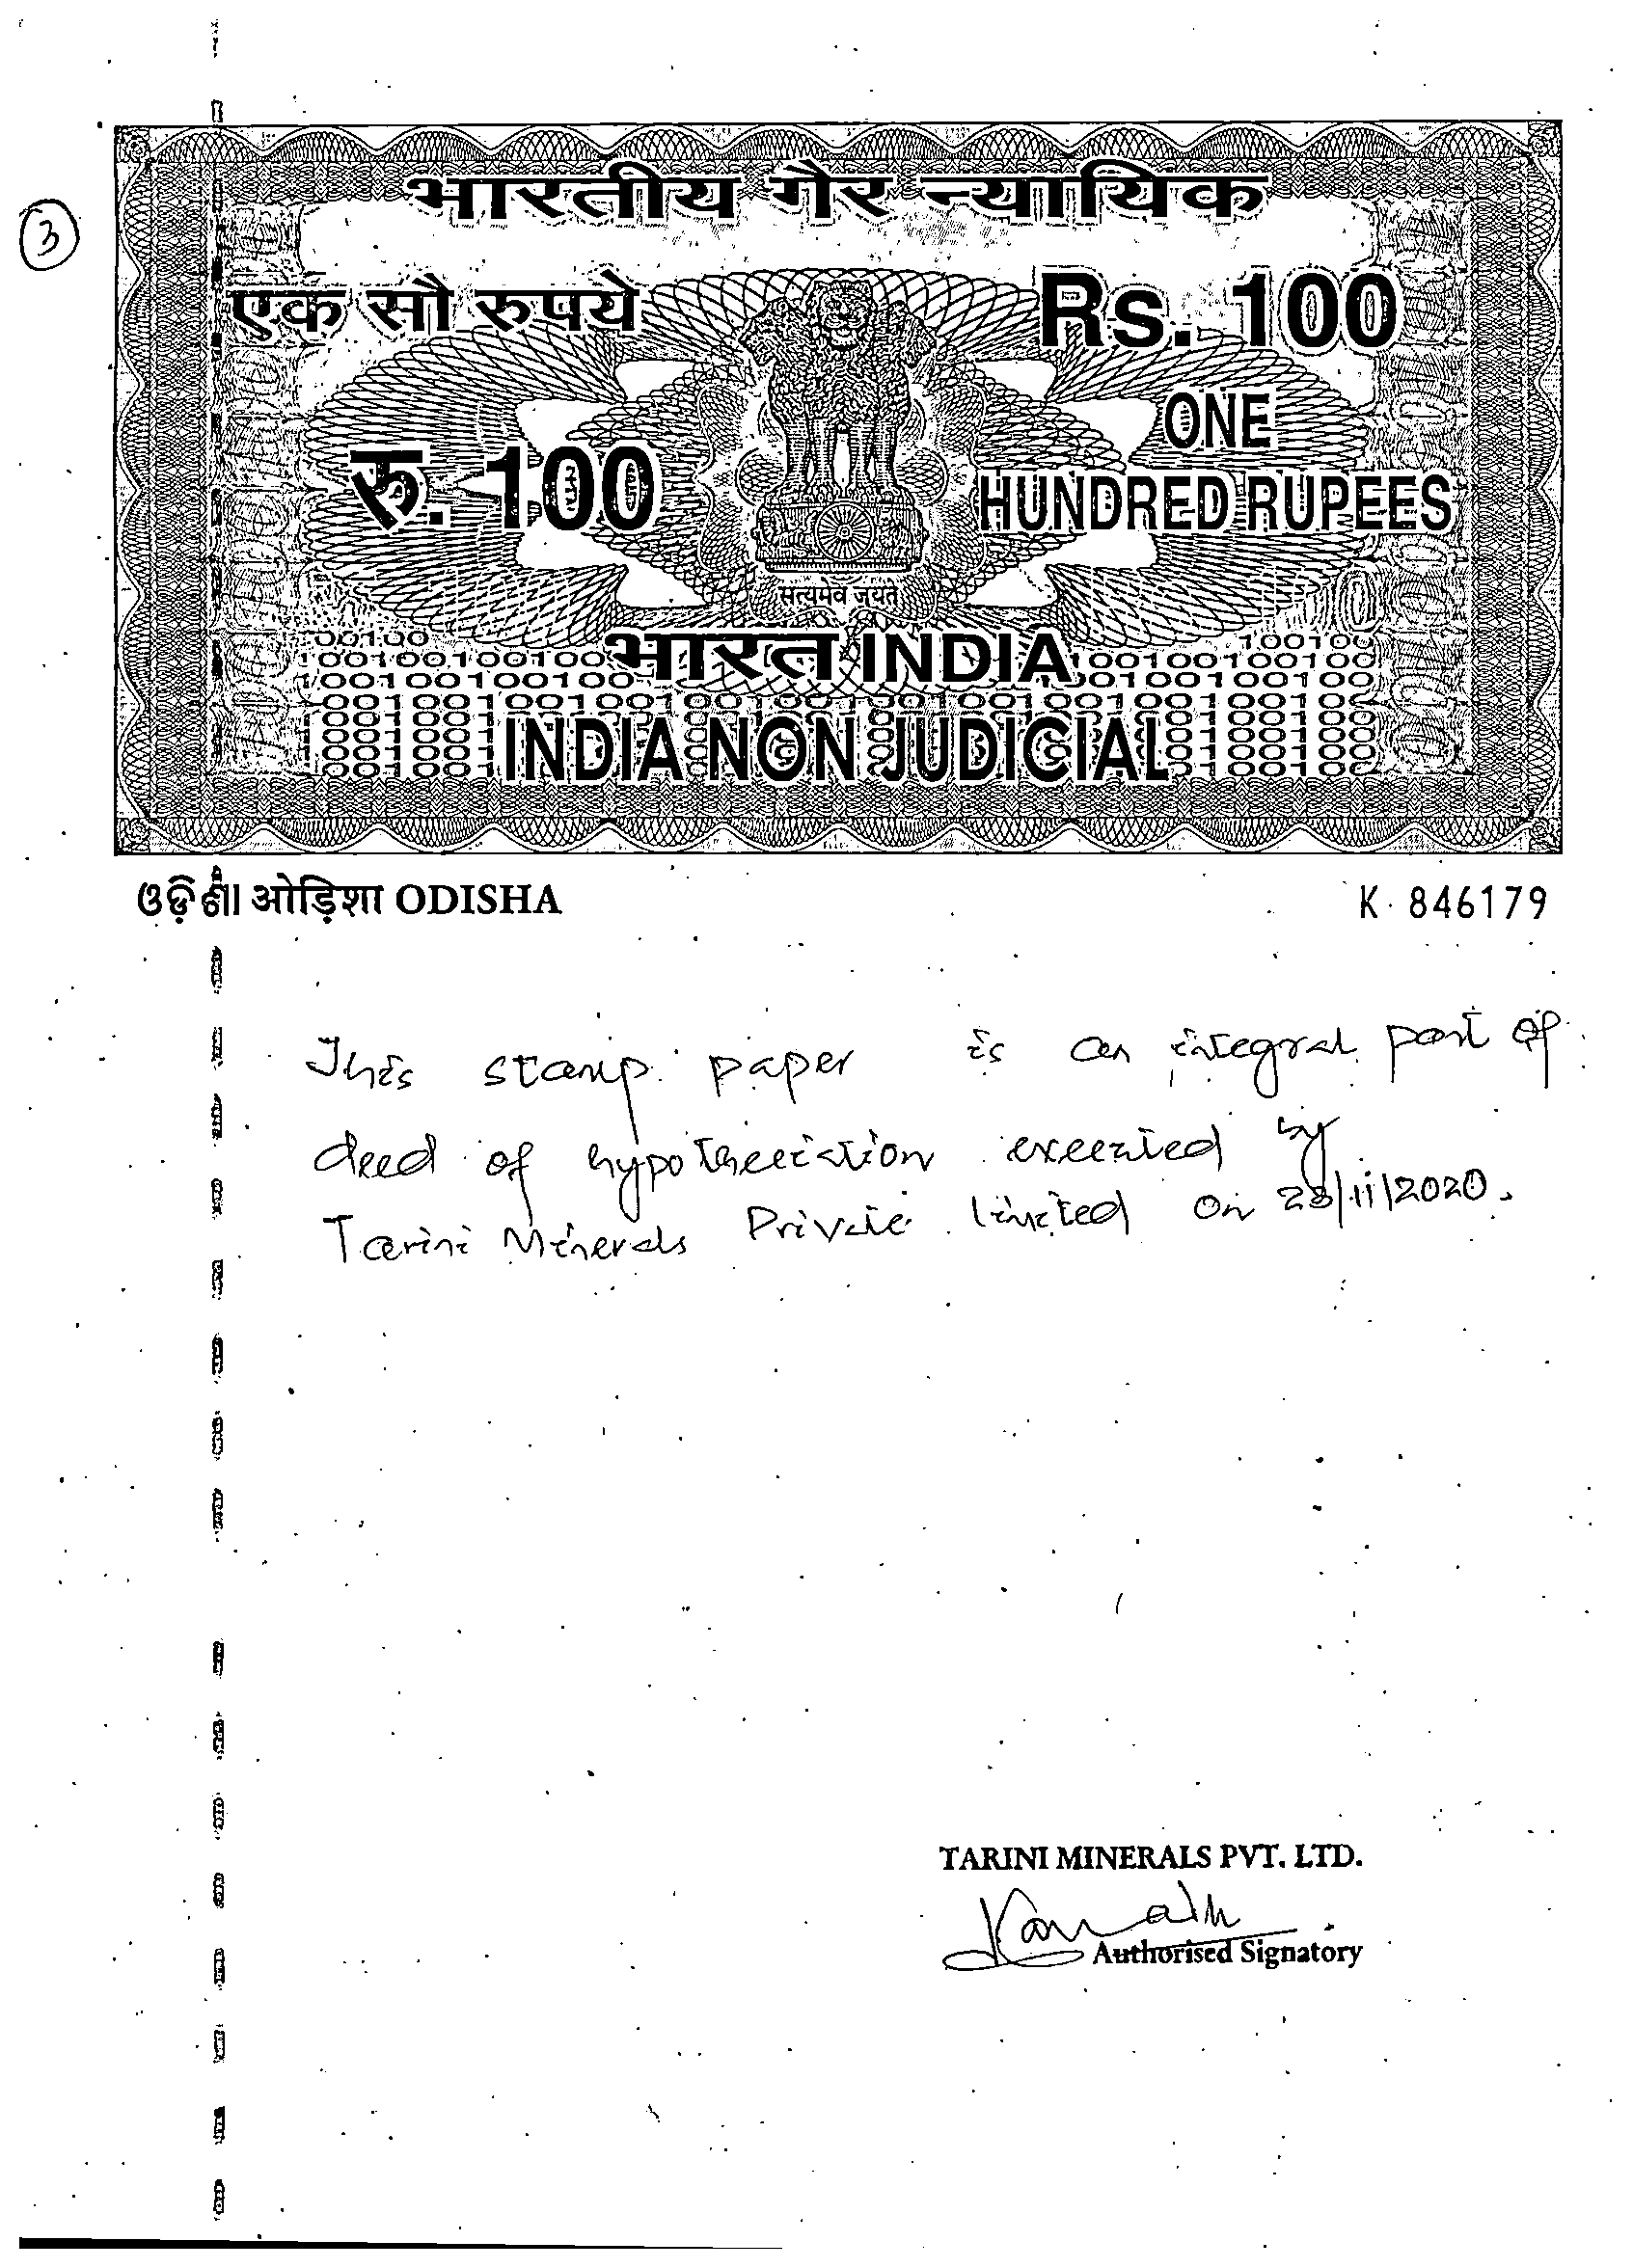 3
भारतीय गैर न्यायिक
एक सौ रुपये
Rs. 100
रु. 100
ONE
HUNDRED RUPEES
सत्यमेव जयते
भारत INDIA
INDIA NON JUDICIAL
ଓଡ଼ିଶା ओड़िशा ODISHA
K 846179
This stamp paper is an integral part of
deed of hypothecation executed by
Tarini Minerals Private Limited on 28/11/2020.
TARINI MINERALS PVT. LTD.
Authorised Signatory